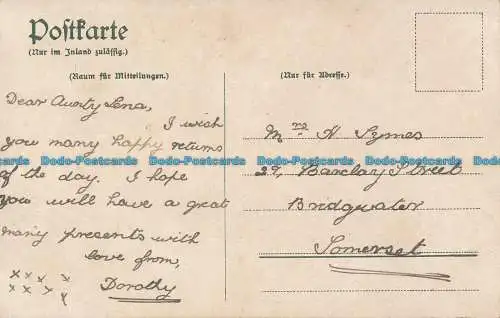 Postkarte
(Nur im Inland zulässig.)
(Raum für Mitteilungen.)
(Nur für Adresse.)
Dear Aunty Lena,
I wish
you many happy returns
of the day. I hope
you will have a great
many presents with
love from,
Dorothy
x x x x
x x x x
Mrs H Symes
29, Barclay Street
Bridgwater
Somerset
Dodo-Postcards Dodo-Postcards Dodo-Postcards Dodo-Postcards Dodo-Postcards